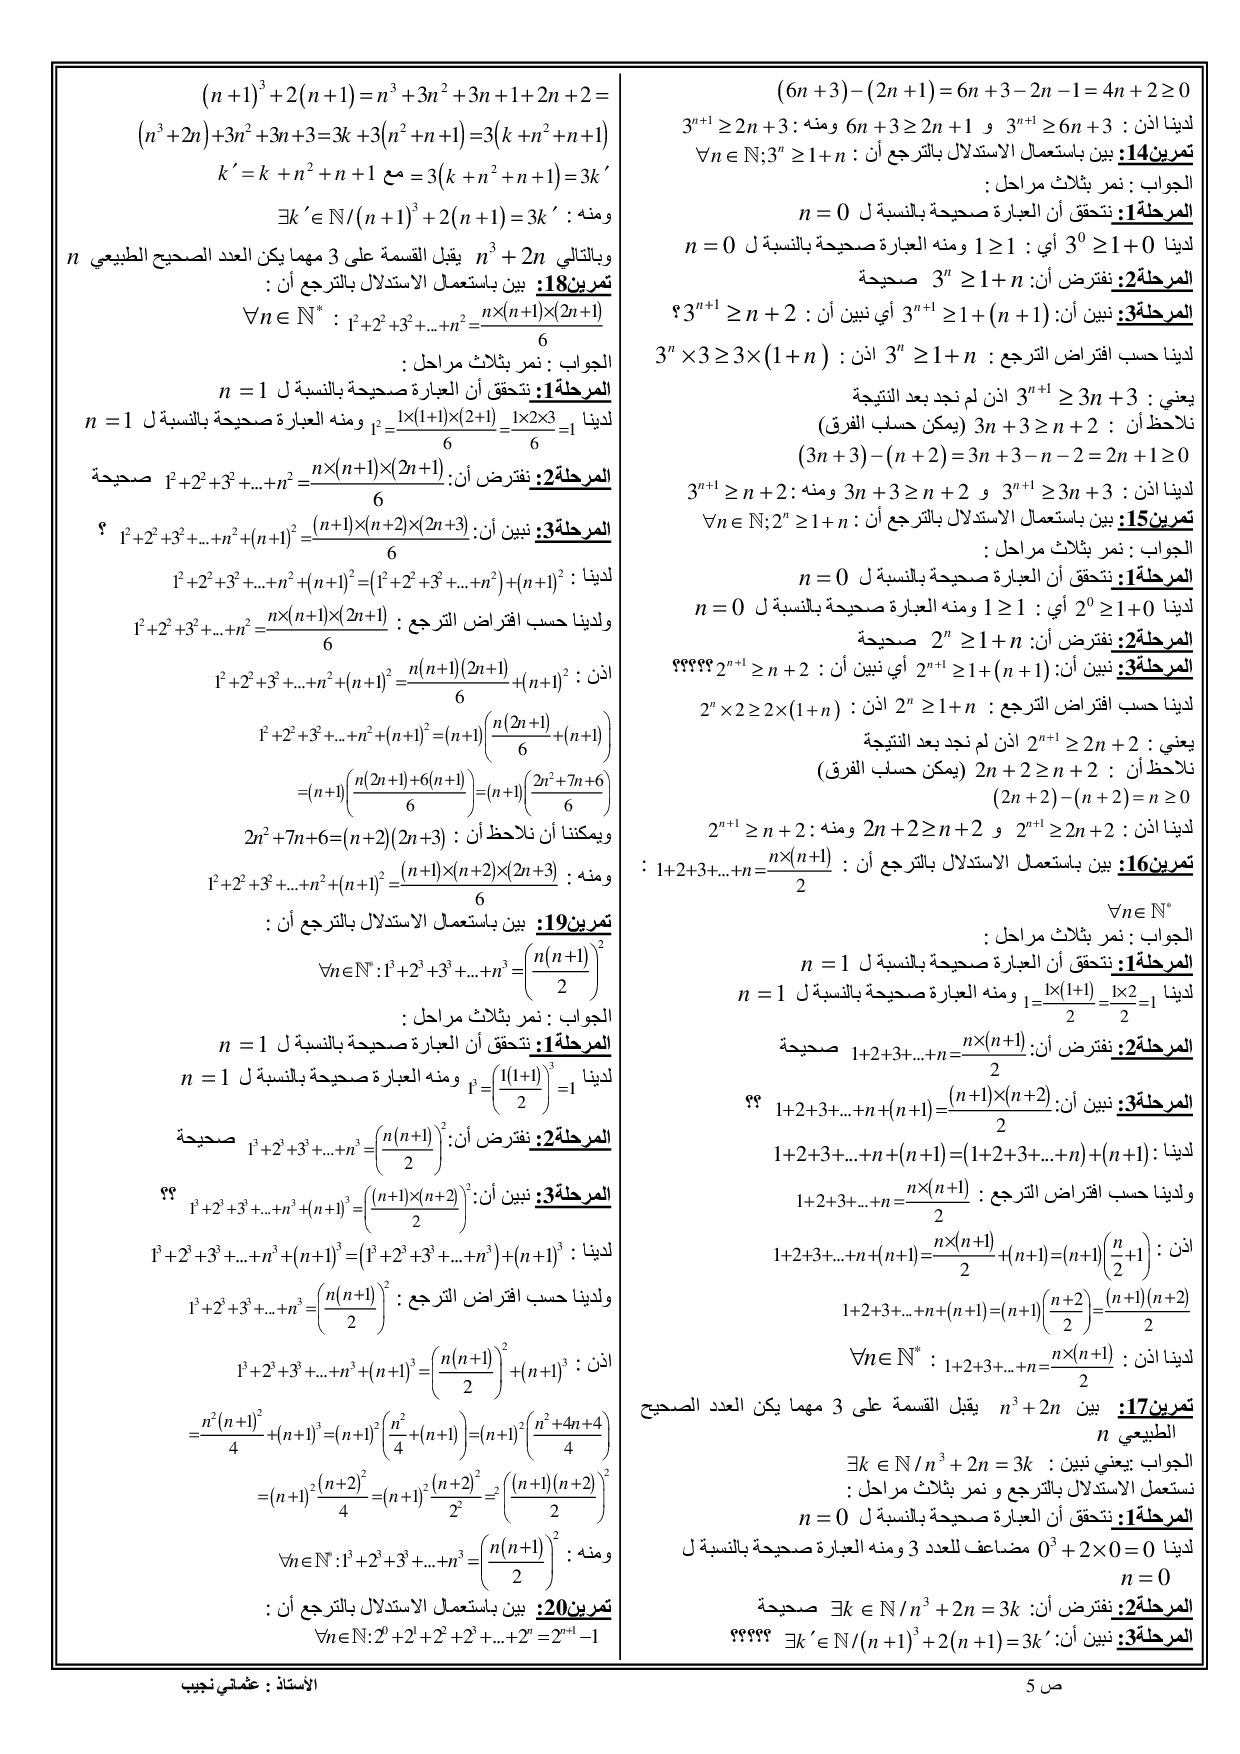 (6n+3)−(2n+1)=6n+3−2n−1=4n+2≥0
لدينا اذن : 3ⁿ⁺¹ ≥ 6n+3 و 6n+3 ≥ 2n+1 ومنه : 3ⁿ⁺¹ ≥ 2n+3
تمرين14: بين باستعمال الاستدلال بالترجع أن : ∀n∈ℕ;3ⁿ ≥1+n
الجواب : نمر بثلاث مراحل :
المرحلة1: نتحقق أن العبارة صحيحة بالنسبة ل n=0
لدينا 3⁰ ≥1+0 أي : 1≥1 ومنه العبارة صحيحة بالنسبة ل n=0
المرحلة2: نفترض أن: 3ⁿ ≥1+n صحيحة
المرحلة3: نبين أن: 3ⁿ⁺¹ ≥1+(n+1) أي نبين أن : 3ⁿ⁺¹ ≥ n+2 ؟
لدينا حسب افتراض الترجع : 3ⁿ ≥1+n اذن : 3ⁿ×3≥3×(1+n)
يعني : 3ⁿ⁺¹ ≥ 3n+3 اذن لم نجد بعد النتيجة
نلاحظ أن : 3n+3≥n+2 (يمكن حساب الفرق)
(3n+3)−(n+2)=3n+3−n−2=2n+1≥0
لدينا اذن : 3ⁿ⁺¹ ≥ 3n+3 و 3n+3≥n+2 ومنه : 3ⁿ⁺¹ ≥ n+2
تمرين15: بين باستعمال الاستدلال بالترجع أن : ∀n∈ℕ;2ⁿ ≥1+n
الجواب : نمر بثلاث مراحل :
المرحلة1: نتحقق أن العبارة صحيحة بالنسبة ل n=0
لدينا 2⁰ ≥1+0 أي : 1≥1 ومنه العبارة صحيحة بالنسبة ل n=0
المرحلة2: نفترض أن: 2ⁿ ≥1+n صحيحة
المرحلة3: نبين أن: 2ⁿ⁺¹ ≥1+(n+1) أي نبين أن : 2ⁿ⁺¹ ≥ n+2 ؟؟؟؟؟
لدينا حسب افتراض الترجع : 2ⁿ ≥1+n اذن : 2ⁿ×2≥2×(1+n)
يعني : 2ⁿ⁺¹ ≥ 2n+2 اذن لم نجد بعد النتيجة
نلاحظ أن : 2n+2≥n+2 (يمكن حساب الفرق)
(2n+2)−(n+2)=n≥0
لدينا اذن : 2ⁿ⁺¹ ≥ 2n+2 و 2n+2≥n+2 ومنه : 2ⁿ⁺¹ ≥ n+2
تمرين16: بين باستعمال الاستدلال بالترجع أن : 1+2+3+...+n=n×(n+1)/2 :
∀n∈ℕ*
الجواب : نمر بثلاث مراحل :
المرحلة1: نتحقق أن العبارة صحيحة بالنسبة ل n=1
لدينا 1=1×(1+1)/2=1×2/2=1 ومنه العبارة صحيحة بالنسبة ل n=1
المرحلة2: نفترض أن: 1+2+3+...+n=n×(n+1)/2 صحيحة
المرحلة3: نبين أن: 1+2+3+...+n+(n+1)=(n+1)×(n+2)/2 ؟؟
لدينا : 1+2+3+...+n+(n+1)=(1+2+3+...+n)+(n+1)
ولدينا حسب افتراض الترجع : 1+2+3+...+n=n×(n+1)/2
اذن : 1+2+3+...+n+(n+1)=n×(n+1)/2+(n+1)=(n+1)(n/2+1)
1+2+3+...+n+(n+1)=(n+1)((n+2)/2)=(n+1)(n+2)/2
لدينا اذن : 1+2+3+...+n=n×(n+1)/2 : ∀n∈ℕ*
تمرين17: بين n³+2n يقبل القسمة على 3 مهما يكن العدد الصحيح
الطبيعي n
الجواب :يعني نبين : ∃k∈ℕ/n³+2n=3k
نستعمل الاستدلال بالترجع و نمر بثلاث مراحل :
المرحلة1: نتحقق أن العبارة صحيحة بالنسبة ل n=0
لدينا 0³+2×0=0 مضاعف للعدد 3 ومنه العبارة صحيحة بالنسبة ل
n=0
المرحلة2: نفترض أن: ∃k∈ℕ/n³+2n=3k صحيحة
المرحلة3: نبين أن: ∃k′∈ℕ/(n+1)³+2(n+1)=3k′ ؟؟؟؟؟
(n+1)³+2(n+1)=n³+3n²+3n+1+2n+2=
(n³+2n)+3n²+3n+3=3k+3(n²+n+1)=3(k+n²+n+1)
=3(k+n²+n+1)=3k′ مع k′=k+n²+n+1
ومنه : ∃k′∈ℕ/(n+1)³+2(n+1)=3k′
وبالتالي n³+2n يقبل القسمة على 3 مهما يكن العدد الصحيح الطبيعي n
تمرين18: بين باستعمال الاستدلال بالترجع أن :
∀n∈ℕ* : 1²+2²+3²+...+n²=n×(n+1)×(2n+1)/6
الجواب : نمر بثلاث مراحل :
المرحلة1: نتحقق أن العبارة صحيحة بالنسبة ل n=1
لدينا 1²=1×(1+1)×(2+1)/6=1×2×3/6=1 ومنه العبارة صحيحة بالنسبة ل n=1
المرحلة2: نفترض أن: 1²+2²+3²+...+n²=n×(n+1)×(2n+1)/6 صحيحة
المرحلة3: نبين أن: 1²+2²+3²+...+n²+(n+1)²=(n+1)×(n+2)×(2n+3)/6 ؟
لدينا : 1²+2²+3²+...+n²+(n+1)²=(1²+2²+3²+...+n²)+(n+1)²
ولدينا حسب افتراض الترجع : 1²+2²+3²+...+n²=n×(n+1)×(2n+1)/6
اذن : 1²+2²+3²+...+n²+(n+1)²=n(n+1)(2n+1)/6+(n+1)²
1²+2²+3²+...+n²+(n+1)²=(n+1)(n(2n+1)/6+(n+1))
=(n+1)((n(2n+1)+6(n+1))/6)=(n+1)((2n²+7n+6)/6)
ويمكننا أن نلاحظ أن : 2n²+7n+6=(n+2)(2n+3)
ومنه : 1²+2²+3²+...+n²+(n+1)²=(n+1)×(n+2)×(2n+3)/6
تمرين19: بين باستعمال الاستدلال بالترجع أن :
∀n∈ℕ*:1³+2³+3³+...+n³=(n(n+1)/2)²
الجواب : نمر بثلاث مراحل :
المرحلة1: نتحقق أن العبارة صحيحة بالنسبة ل n=1
لدينا 1³=(1(1+1)/2)³=1 ومنه العبارة صحيحة بالنسبة ل n=1
المرحلة2: نفترض أن: 1³+2³+3³+...+n³=(n(n+1)/2)² صحيحة
المرحلة3: نبين أن: 1³+2³+3³+...+n³+(n+1)³=((n+1)×(n+2)/2)² ؟؟
لدينا : 1³+2³+3³+...+n³+(n+1)³=(1³+2³+3³+...+n³)+(n+1)³
ولدينا حسب افتراض الترجع : 1³+2³+3³+...+n³=(n(n+1)/2)²
اذن : 1³+2³+3³+...+n³+(n+1)³=(n(n+1)/2)²+(n+1)³
=n²(n+1)²/4+(n+1)³=(n+1)²(n²/4+(n+1))=(n+1)²((n²+4n+4)/4)
=(n+1)²(n+2)²/4=(n+1)²(n+2)²/2²=²((n+1)(n+2)/2)²
ومنه : ∀n∈ℕ*:1³+2³+3³+...+n³=(n(n+1)/2)²
تمرين20: بين باستعمال الاستدلال بالترجع أن :
∀n∈ℕ:2⁰+2¹+2²+2³+...+2ⁿ=2ⁿ⁺¹−1
ص 5
الأستاذ : عثماني نجيب